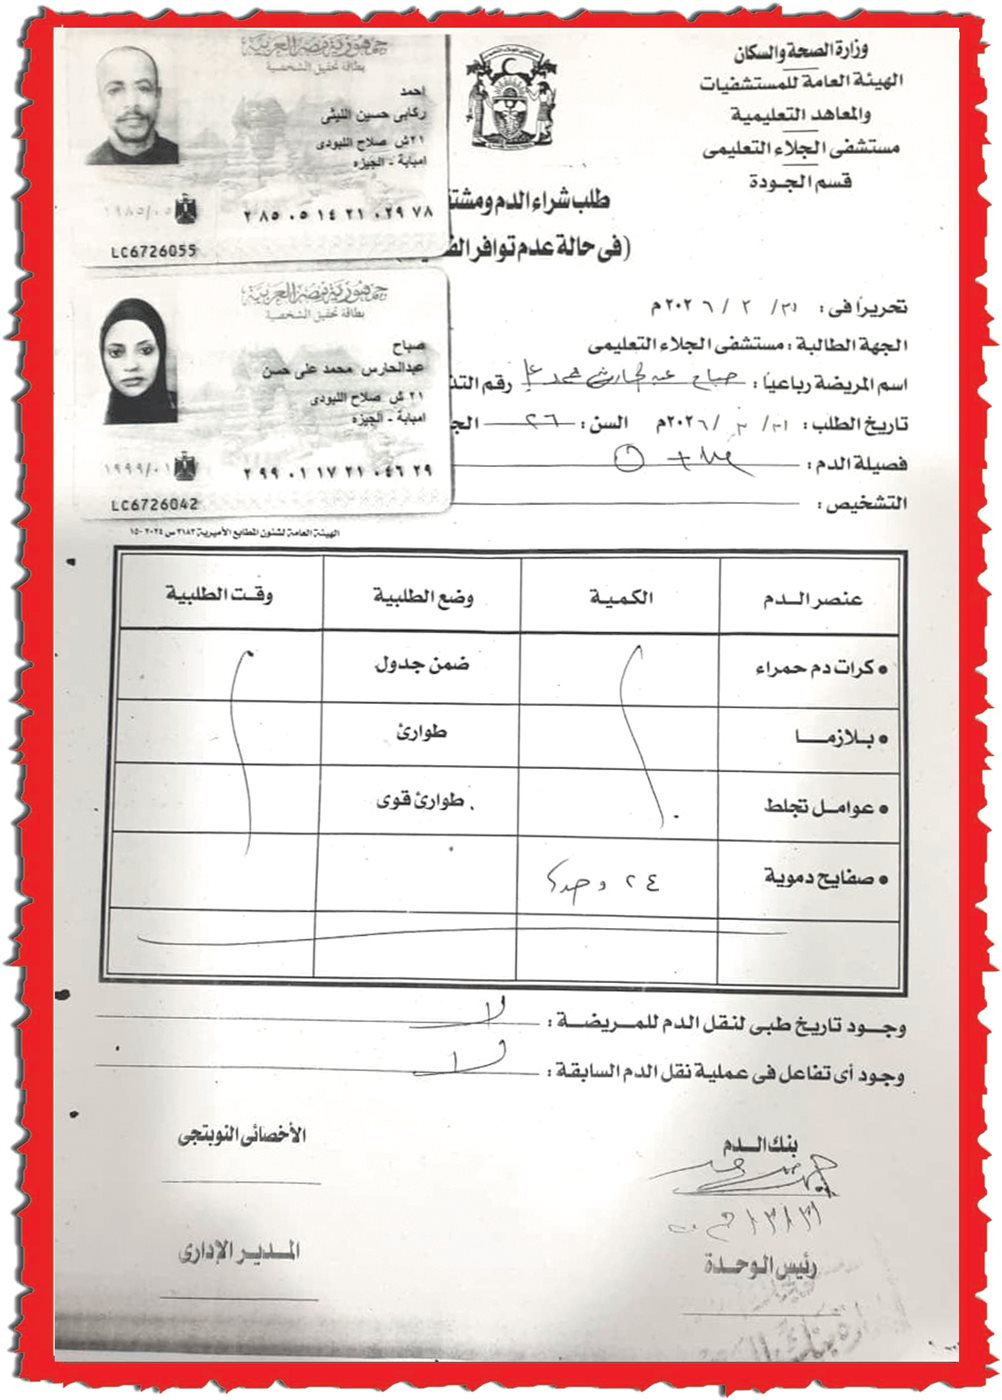 وزارة الصحة والسكان
الهيئة العامة للمستشفيات
والمعاهد التعليمية
مستشفى الجلاء التعليمى
قسم الجودة
جمهورية مصر العربية
بطاقة تحقيق الشخصية
احمد
ركابى حسين الليثى
٢١ش صلاح اللبودى
امبابة - الجيزه
١٩٨٥/٠٥
٢ ٨٥ ٠٥ ١٤ ٢١ ٠٢٩ ٧٨
LC6726055
جمهورية مصر العربية
بطاقة تحقيق الشخصية
صباح
عبدالحارس محمد على حسن
٢١ ش صلاح اللبودى
امبابة - الجيزه
١٩٩٩/٠١
٢ ٩٩ ٠١ ١٧ ٢١ ٠٤٦ ٢٩
LC6726042
طلب شراء الدم ومشتق
(فى حالة عدم توافر الف
تحريراً فى : ٣١/ ٣ /٢٠٢٦م
الجهة الطالبة : مستشفى الجلاء التعليمى
اسم المريضة رباعياً : صباح عبد الحارث محمد على رقم التذ
تاريخ الطلب : ٣١/ ٣ /٢٠٢٦م السن : ٢٦ الج
فصيلة الدم : O +
التشخيص :
الهيئة العامة لشئون المطابع الأميرية ٣١٨٣ س ٢٠٢٤ - ١٥
عنصر الدم الكمية وضع الطلبية وقت الطلبية
• كرات دم حمراء ضمن جدول
• بلازما طوارئ
• عوامل تجلط طوارئ قوى
• صفايح دموية ٢٤ وحدة
وجود تاريخ طبى لنقل الدم للمريضة : لا
وجود أى تفاعل فى عملية نقل الدم السابقة : لا
بنك الدم الأخصائى النوبتجى
رئيس الوحدة المدير الإدارى